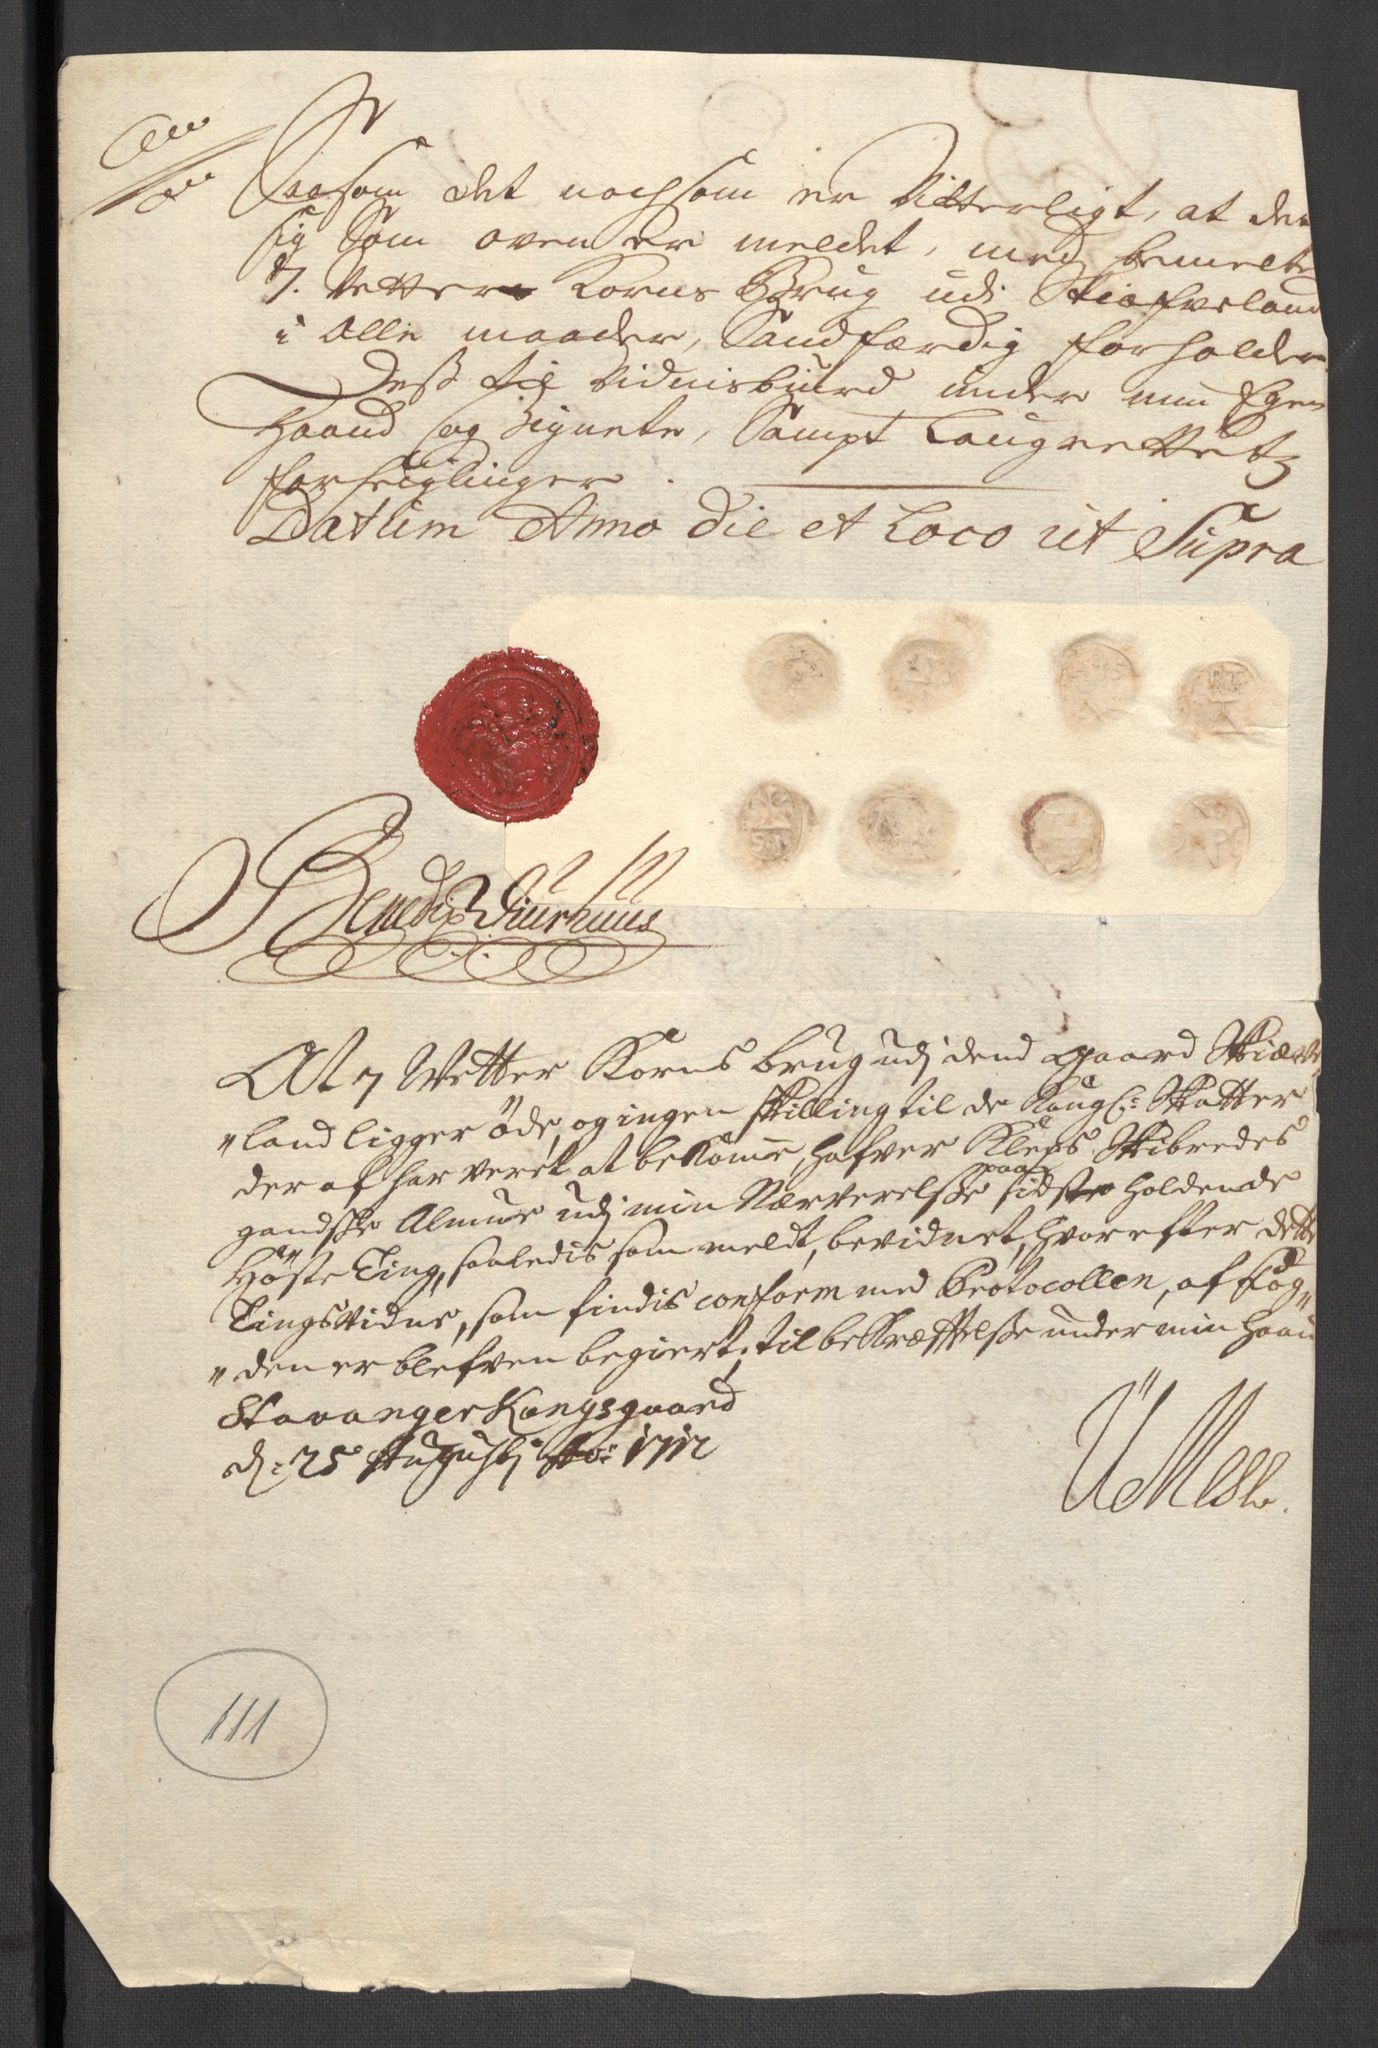 Saasom det nochsom er Vitterligt, at det
sig Som oven er meldet, med bemelte
7. Vetters Korns Brug udi Skiæfveland
i Alle maader, Sandfærdig forholder
Dess til Vidnisbiurd under min Egen
Haand og Zignete, Sampt Laugrettetz
forseiglinger.
Datum Anno Die et Loco ut Supra
Bendix Diurhuus
At 7 Vetter Korns brug udj dend gaard Skiæve
"land ligger øde, og ingen skilling til de Kongl: Skatter
der af har veret at bekomme, hafver Kleps Skibredes
gandske Almue udj min Nærverelsse paa sidste holdende
Høste Ting, saaledis som meldt, bevidnet, hvorefter dette
Tingsvidne, som findis conform med Protocollen, af Fog"
"den er blefven begiert; til bekræfttelsse under min Haand
Stavanger Kongsgaard
d: 25 Augustj Ao: 1712
111